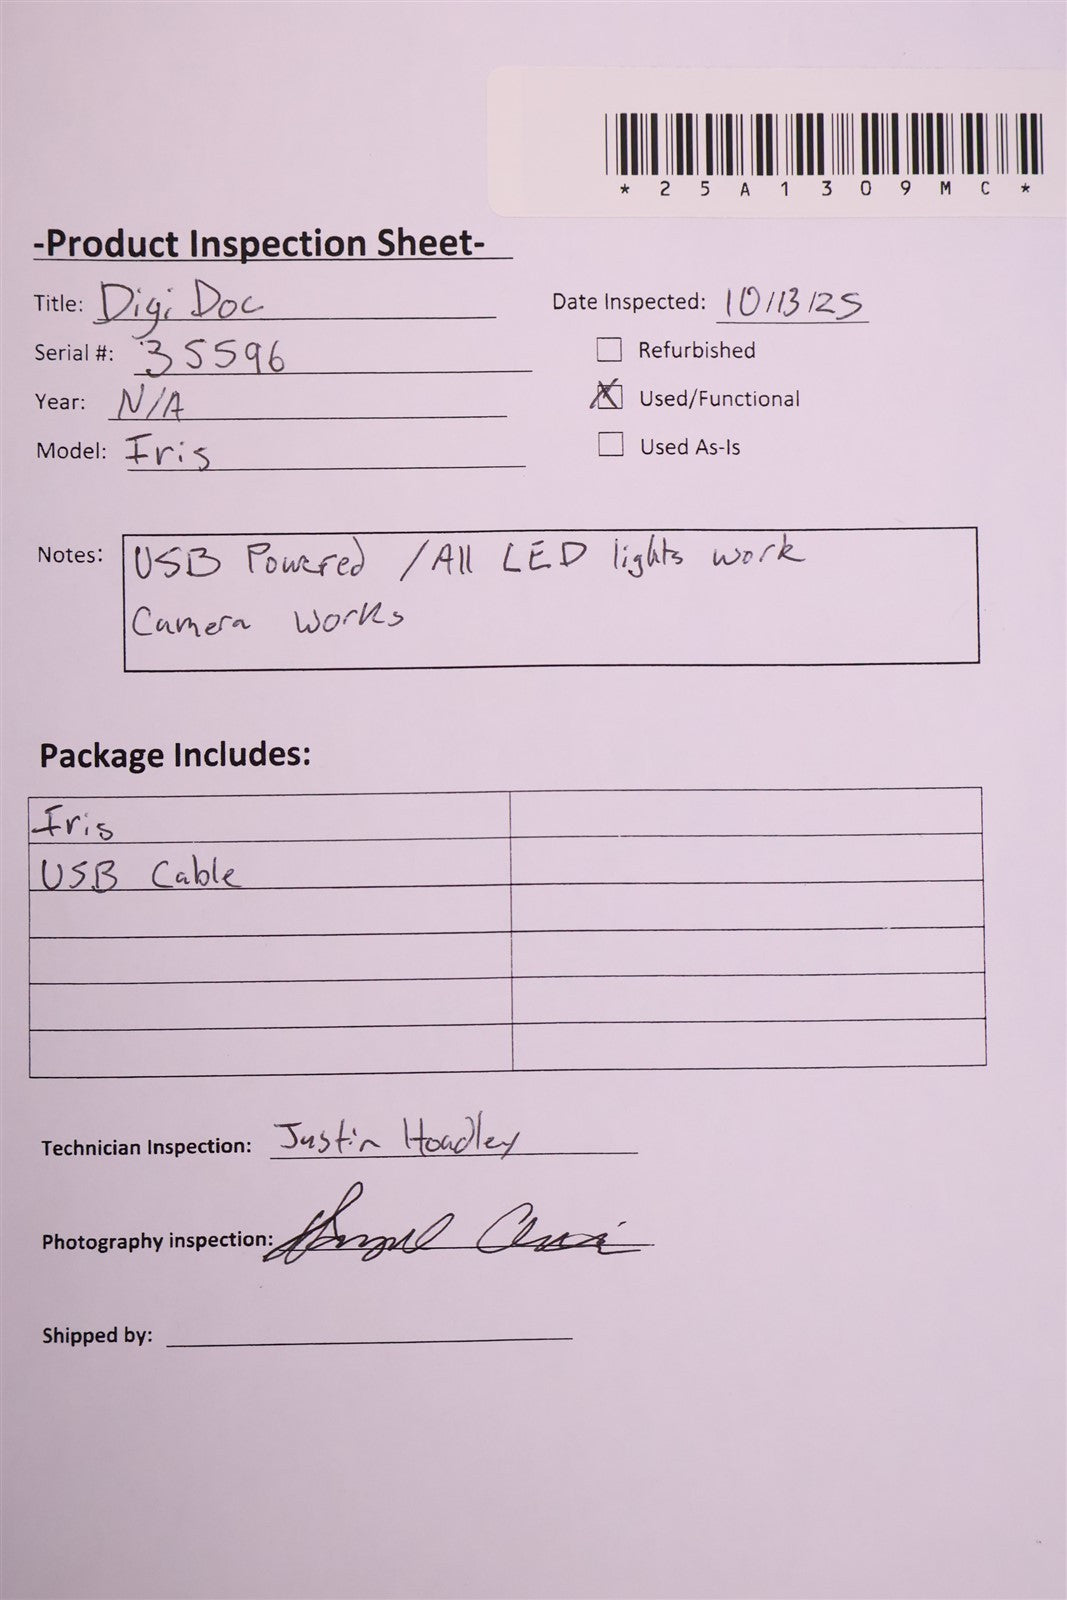 *25A1309MC*
-Product Inspection Sheet-
Title: Digi Doc
Date Inspected: 10/13/25
Serial #: 35596
Refurbished
Year: N/A
Used/Functional
Model: Iris
Used As-Is
Notes: USB Powered / All LED lights work
Camera Works
Package Includes:
Iris
USB Cable
Technician Inspection: Justin Hoadley
Photography inspection:
Shipped by: